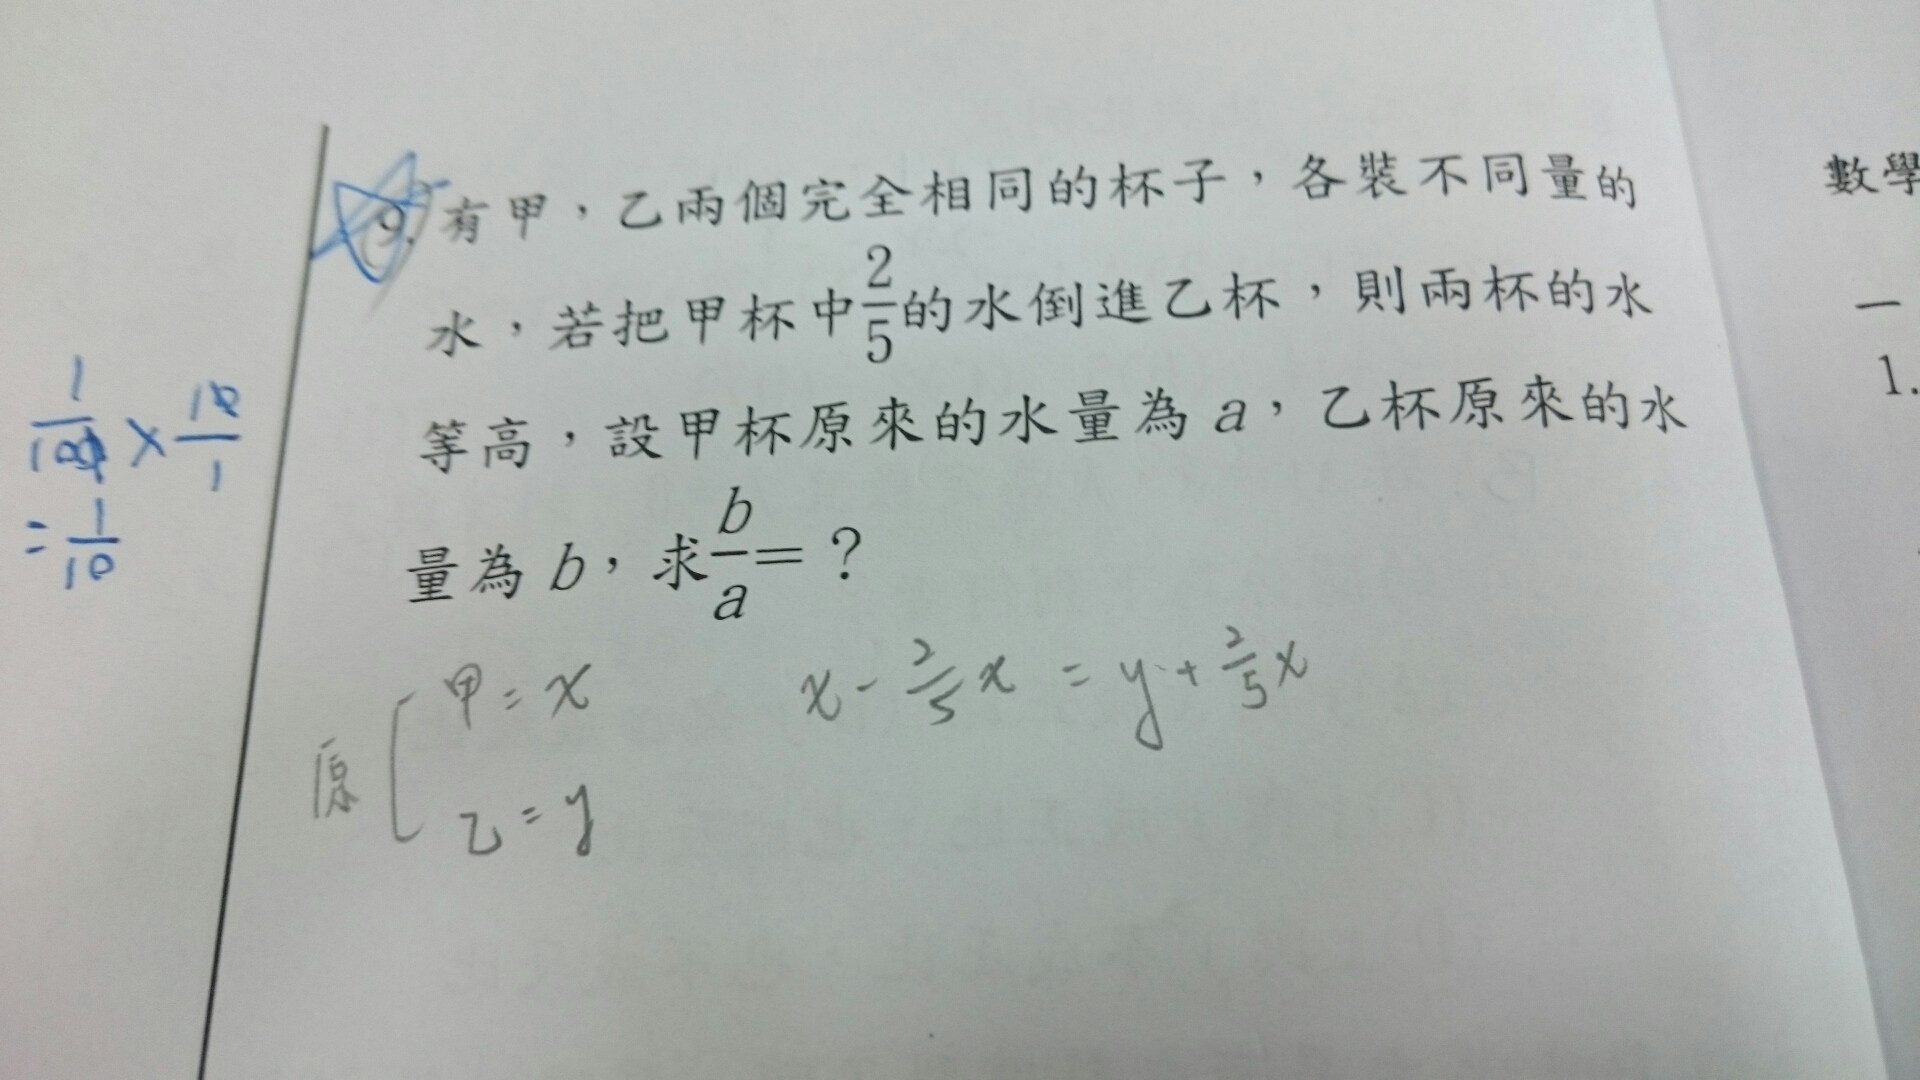 9. 有甲，乙兩個完全相同的杯子，各裝不同量的
水，若把甲杯中2/5的水倒進乙杯，則兩杯的水
等高，設甲杯原來的水量為 a，乙杯原來的水
量為 b，求b/a=？
原 甲=x
乙=y
x-2/5x=y+2/5x
1/100×10/1
=1/10
數學
一
1.